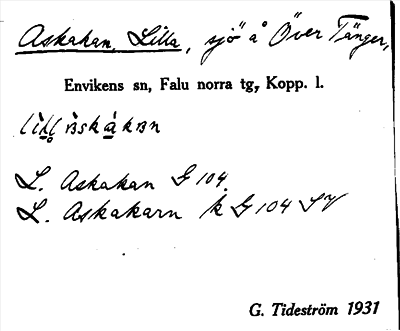 Askakan, Lilla, sjö å Över Tänger,
Envikens sn, Falu norra tg, Kopp. l.
L. Askakan G 104
L. Askakarn k G 104 SV
G. Tideström 1931